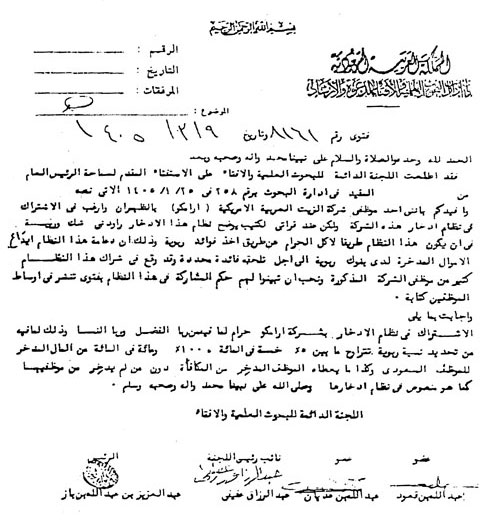 بسم الله الرحمن الرحيم
الرقم :
المملكة العربية السعودية
التاريخ :
المرفقات :
الموضوع :
فتوى رقم ٨١٦١ وتاريخ ١٤٠٥/٣/٩
الحمد لله وحده والصلاة والسلام على نبينا محمد وآله وصحبه وبعد
فقد اطلعت اللجنة الدائمة للبحوث العلمية والافتاء على الاستفتاء المقدم لسماحة الرئيس العام
من المقيد في ادارة البحوث برقم ٢٥٨ في ١٤٠٥/١/٢٥ الآتي نصه
وافيدكم بانني احد موظفي شركة الزيت العربية الامريكية ( ارامكو ) بالظهران وارغب في الاشتراك
في نظام ادخار هذه الشركة ولكن عند قرائتي لكتيب يوضح نظام هذا الادخار راودني شك وريبة
في ان يكون هذا النظام طريقا لاكل الحرام عن طريق اخذ فوائد ربوية وذلك ان دعامة هذا النظام ايداع
الاموال المدخرة لدى بنوك ربوية الى اجل تلحقه فائدة محددة وقد وقع في شراك هذا النظام
كثير من موظفي الشركة المذكورة ونحب ان تبينوا لهم حكم المشاركة في هذا النظام بفتوى تنتشر في اوساط
الموظفين كتابة ٠
واجابت بما يلي
الاشتراك في نظام الادخار بشركة ارامكو حرام لما فيه من ربا الفضل وربا النسا وذلك لما فيه
من تحديد نسبة ربوية تتراوح ما بين ٥٪ خمسة في المائة ١٠٠٪ ومائة في المائة من المال المدخر
للموظف السعودي وكذا ما يعطاه الموظف المدخر من المكافأة دون من لم يدخر من موظفيها
كما هو منصوص في نظام ادخارها وصلى الله على نبينا محمد واله وصحبه وسلم ٠
اللجنة الدائمة للبحوث العلمية والافتاء
عضو عضو نائب رئيس اللجنة الرئيس
عبد الله بن قعود عبد الله بن غديان عبد الرزاق عفيفي عبد العزيز بن عبد الله بن باز